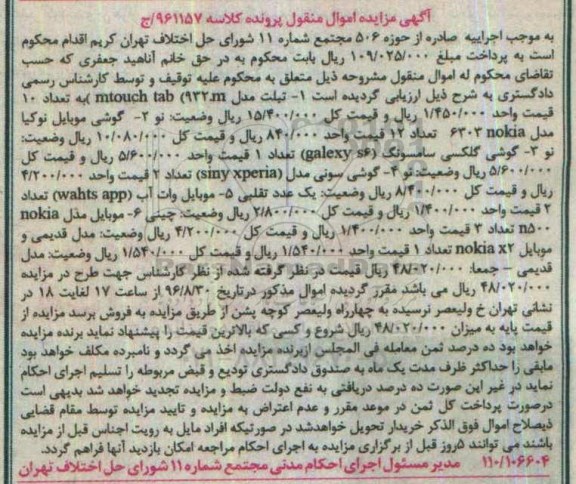 آگهی مزایده اموال منقول پرونده کلاسه ۹۶۱۱۵۷/ج
به موجب اجراییه صادره از حوزه ۵۰۶ مجتمع شماره ۱۱ شورای حل اختلاف تهران کریم اقدام محکوم
است به پرداخت مبلغ ۱۰۹/۰۲۵/۰۰۰ ریال بابت محکوم به در حق خانم آناهید جعفری که حسب
تقاضای محکوم له اموال منقول مشروحه ذیل متعلق به محکوم علیه توقیف و توسط کارشناس رسمی
دادگستری به شرح ذیل ارزیابی گردیده است ۱- تبلت مدل mtouch tab (۹۳۲.m )به تعداد ۱۰
قیمت واحد ۱/۴۵۰/۰۰۰ ریال و قیمت کل ۱۵/۴۰۰/۰۰۰ ریال وضعیت: نو ۲- گوشی موبایل نوکیا
مدل nokia ۶۳۰۳ تعداد ۱۲ قیمت واحد ۸۴۰/۰۰۰ ریال و قیمت کل ۱۰/۰۸۰/۰۰۰ ریال وضعیت:
نو ۳- گوشی گلکسی سامسونگ (galexy s۶) تعداد ۱ قیمت واحد ۵/۶۰۰/۰۰۰ ریال و قیمت کل
۵/۶۰۰/۰۰۰ ریال وضعیت: نو ۴- گوشی سونی مدل (siny xperia) تعداد ۲ قیمت واحد ۴/۲۰۰/۰۰۰
ریال و قیمت کل ۸/۴۰۰/۰۰۰ ریال وضعیت: یک عدد تقلبی ۵- موبایل وات آپ (wahts app) تعداد
۲ قیمت واحد ۱/۴۰۰/۰۰۰ ریال و قیمت کل ۲/۸۰۰/۰۰۰ ریال وضعیت: چینی ۶- موبایل مدل nokia
n۵۰۰ تعداد ۳ قیمت واحد ۱/۴۰۰/۰۰۰ ریال و قیمت کل ۴/۲۰۰/۰۰۰ ریال وضعیت: مدل قدیمی و
موبایل nokia x۲ تعداد ۱ قیمت واحد ۱/۵۴۰/۰۰۰ ریال و قیمت کل ۱/۵۴۰/۰۰۰ ریال وضعیت: مدل
قدیمی – جمعا: ۴۸/۰۲۰/۰۰۰ ریال قیمت در نظر گرفته شده از نظر کارشناس جهت طرح در مزایده
۴۸/۰۲۰/۰۰۰ ریال می باشد مقرر گردیده اموال مذکور درتاریخ ۹۶/۸/۳۰ از ساعت ۱۷ لغایت ۱۸ در
نشانی تهران خ ولیعصر نرسیده به چهارراه ولیعصر کوچه پشن از طریق مزایده به فروش برسد مزایده از
قیمت پایه به میزان ۴۸/۰۲۰/۰۰۰ ریال شروع و کسی که بالاترین قیمت را پیشنهاد نماید برنده مزایده
خواهد بود ده درصد ثمن معامله فی المجلس ازبرنده مزایده اخذ می گردد و نامبرده مکلف خواهد بود
مابقی را حداکثر ظرف مدت یک ماه به صندوق دادگستری تودیع و قبض مربوطه را تسلیم اجرای احکام
نماید در غیر این صورت ده درصد دریافتی به نفع دولت ضبط و مزایده تجدید خواهد شد بدیهی است
درصورت پرداخت کل ثمن در موعد مقرر و عدم اعتراض به مزایده و تایید مزایده توسط مقام قضایی
ذیصلاح اموال فوق الذکر خریدار تحویل خواهدشد در صورتیکه افراد مایل به رویت اجناس قبل از مزایده
باشند می توانند ۵روز قبل از برگزاری مزایده به اجرای احکام مراجعه امکان بازدید آنها فراهم گردد.
۱۱۰/۱۰۶۶۰۴ مدیر مسئول اجرای احکام مدنی مجتمع شماره ۱۱ شورای حل اختلاف تهران